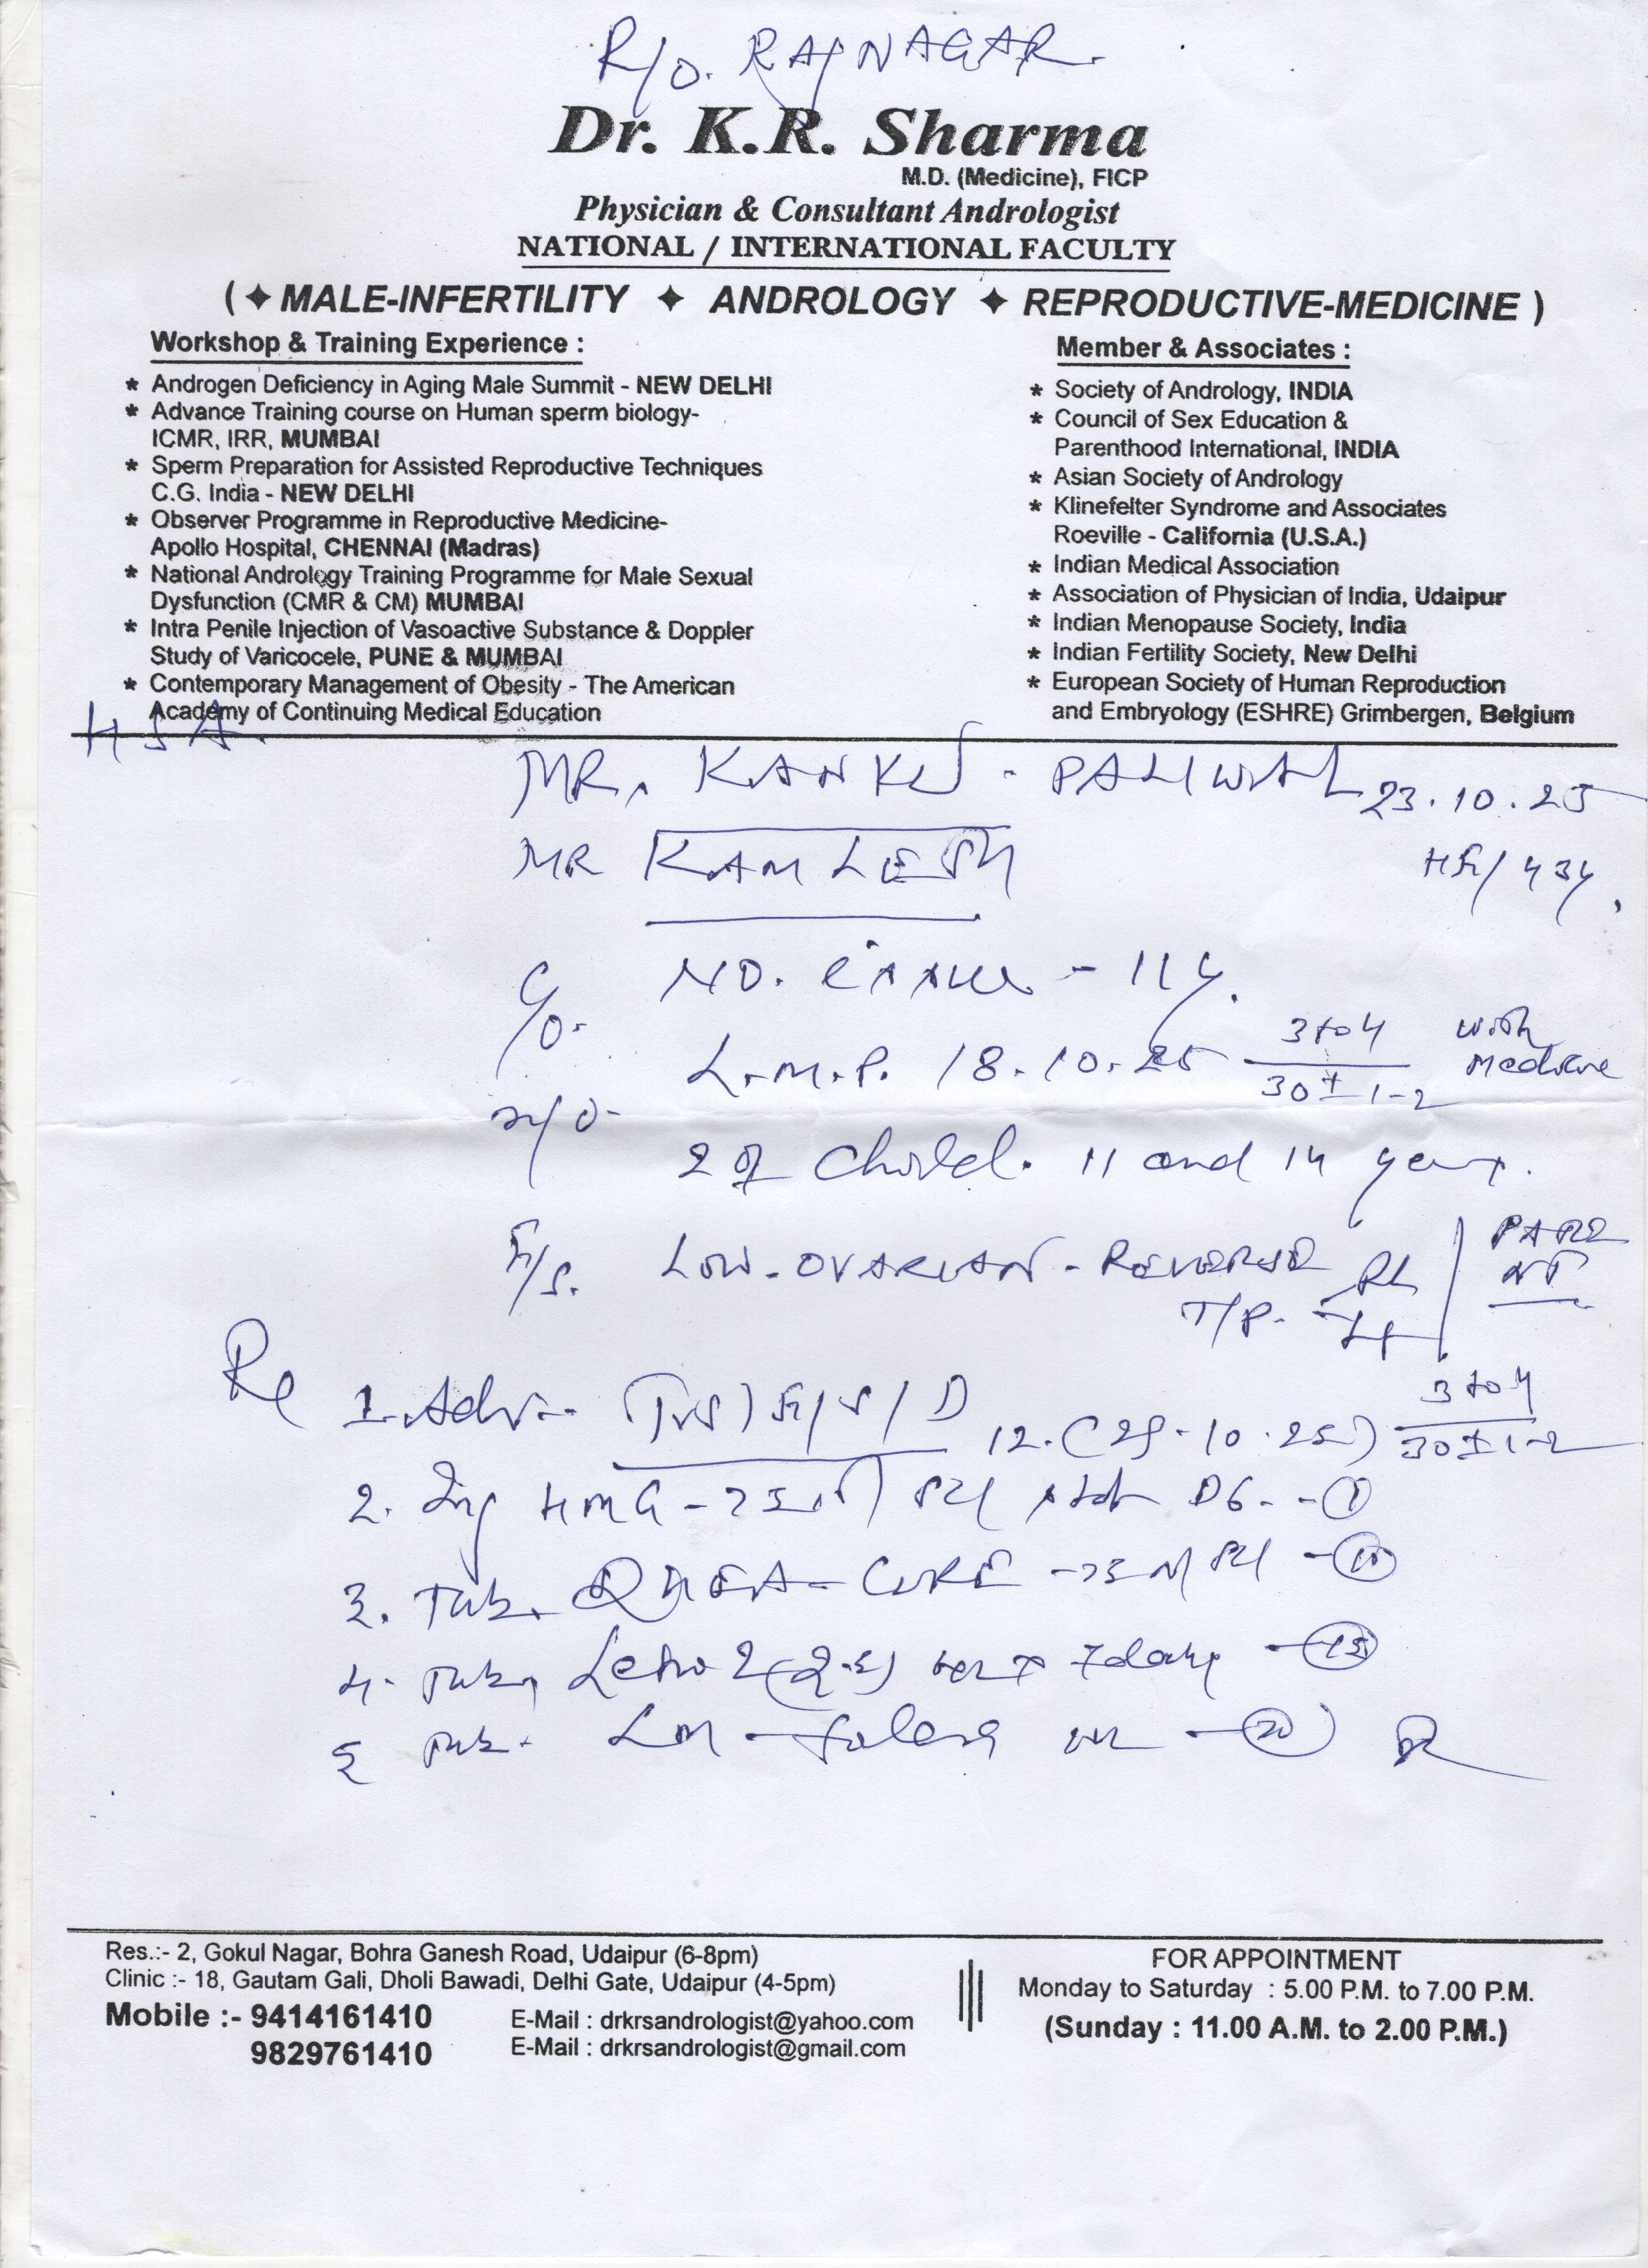 R/o. RAJNAGAR.
Dr. K.R. Sharma
M.D. (Medicine), FICP
Physician & Consultant Andrologist
NATIONAL / INTERNATIONAL FACULTY
( ✦ MALE-INFERTILITY ✦ ANDROLOGY ✦ REPRODUCTIVE-MEDICINE )
Workshop & Training Experience :
* Androgen Deficiency in Aging Male Summit - NEW DELHI
* Advance Training course on Human sperm biology-
ICMR, IRR, MUMBAI
* Sperm Preparation for Assisted Reproductive Techniques
C.G. India - NEW DELHI
* Observer Programme in Reproductive Medicine-
Apollo Hospital, CHENNAI (Madras)
* National Andrology Training Programme for Male Sexual
Dysfunction (CMR & CM) MUMBAI
* Intra Penile Injection of Vasoactive Substance & Doppler
Study of Varicocele, PUNE & MUMBAI
* Contemporary Management of Obesity - The American
Academy of Continuing Medical Education
Member & Associates :
* Society of Andrology, INDIA
* Council of Sex Education &
Parenthood International, INDIA
* Asian Society of Andrology
* Klinefelter Syndrome and Associates
Roeville - California (U.S.A.)
* Indian Medical Association
* Association of Physician of India, Udaipur
* Indian Menopause Society, India
* Indian Fertility Society, New Delhi
* European Society of Human Reproduction
and Embryology (ESHRE) Grimbergen, Belgium
HSA.
MR. KANKU - PALIWAL 23.10.25
MR KAMLESH
/434
C/o. NO. - 11 y.
L.M.P. 18.10.25 3 to 4 / 30 ± 1-2 with Medicine
2 child. 11 and 14 year.
LOW-OVARIAN-REVERSE
T/P.
PARENT
Rx 1. Adv.- (TVS) D 12. ( .10.25) 3 to 4 / 30 ± 1-2
2. Inj HMG - 75 D6 - 1
3. Tab. CORE
4. Tab. Letro 2 (2.5) 7 days - 15
5 Tab. LM - - 20
Res.:- 2, Gokul Nagar, Bohra Ganesh Road, Udaipur (6-8pm)
Clinic :- 18, Gautam Gali, Dholi Bawadi, Delhi Gate, Udaipur (4-5pm)
Mobile :- 9414161410
9829761410
E-Mail : drkrsandrologist@yahoo.com
E-Mail : drkrsandrologist@gmail.com
FOR APPOINTMENT
Monday to Saturday : 5.00 P.M. to 7.00 P.M.
(Sunday : 11.00 A.M. to 2.00 P.M.)